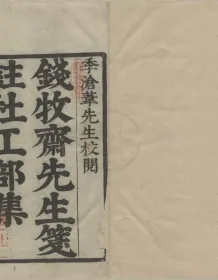 季滄葦先生校閱
錢牧齋先生箋
註杜工部集